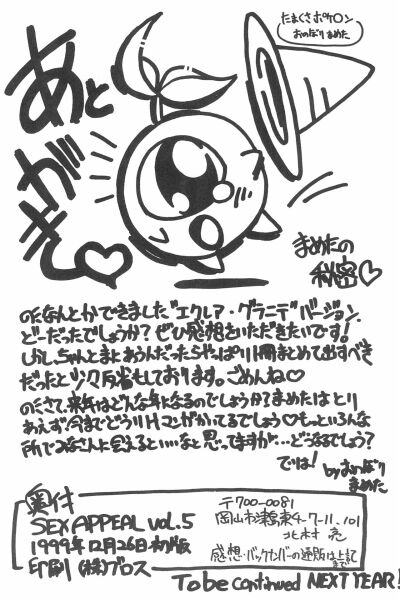 たまくさポケロン
おのぼりまめた
あとがき♡
まめたの
秘密♡
のになんとかできました"エクレア・グラニテ"バージョン、
どーだったでしょうか？ぜひ感想をいただきたいです！
しかし、ちゃんとまとめようんだったらやっぱり1冊まとめて出すべき
だったと少々反省もしております。ごめんね♡
のくさて、来年はどんな年になるのでしょうか？まめたはとり
あえず今までどうりHマンガかいてるでしょう♡もっといろんな
所でみなさんに会えるといいなぁと思ってますが…どうなるでしょう？
では！
byおのぼり
まめた
奥付
SEX APPEAL vol.5
1999年12月26日初版
印刷 (株)ブロス
〒700-0081
岡山市津島東4-7-11、101
北村 亮
感想・バックナンバーの通販は上記
まで
To be continued NEXT YEAR!